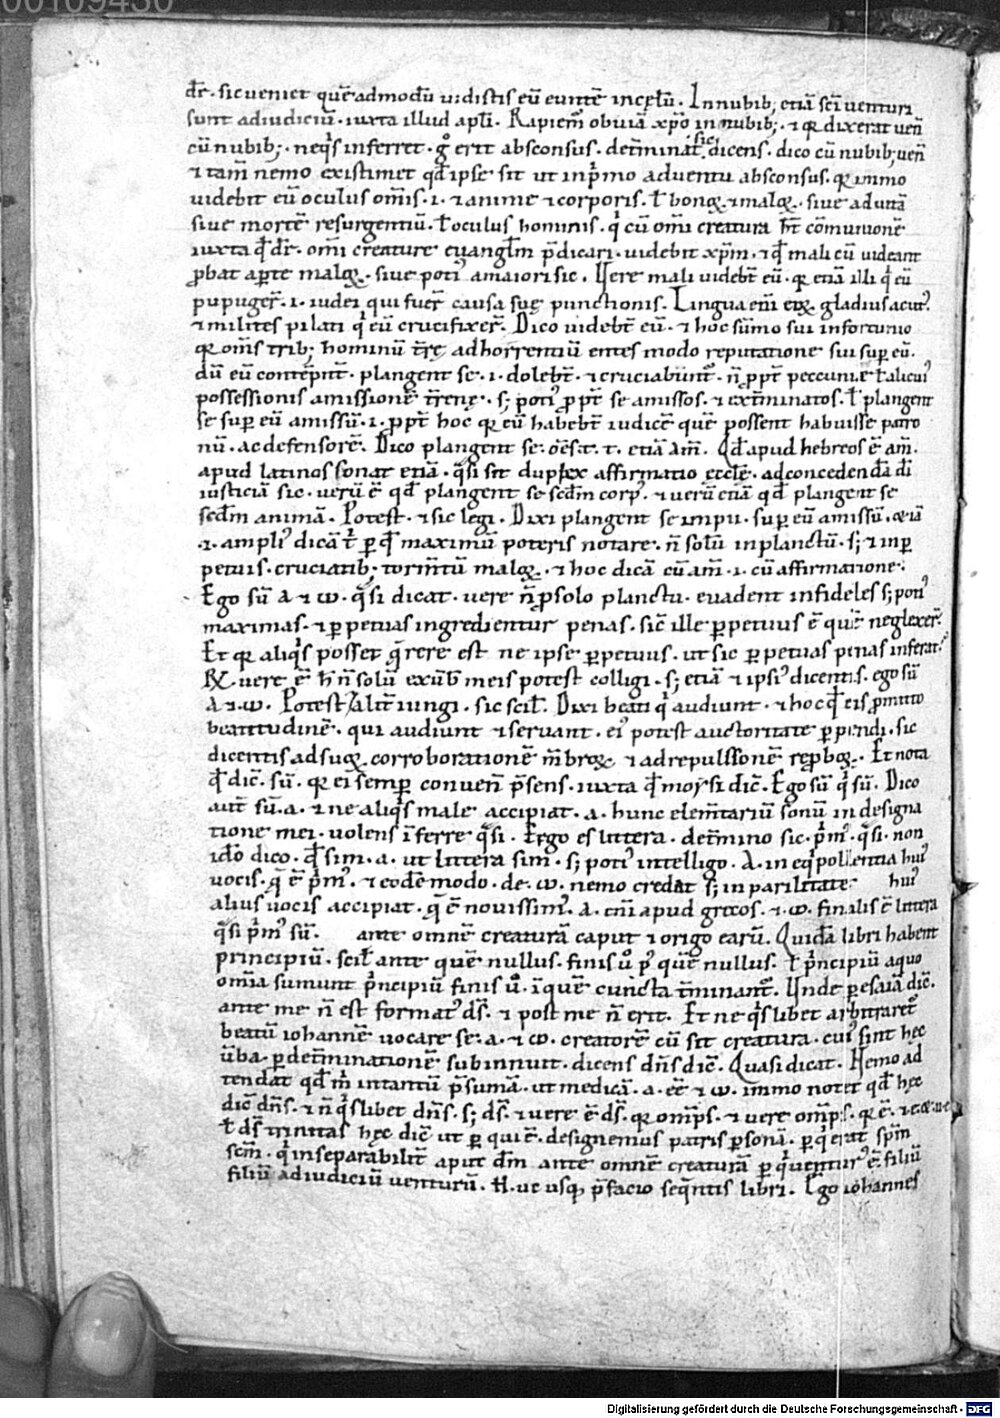 00109430
dr̄. sic veniet quē admodū vidistis eū euntē in cęlū. In nubib; etiā sc̄i venturi
sunt ad iudiciū. iuxta illud apl̄i. Rapiem̄ obviā xp̄o in nubib;. ⁊ qꝛ dixerat ven̄
cū nubib;. neq̇s inferret. g̊ erit absconsus. det̄minat sic dicens. dico cū nubib; ven̄
⁊ tam̄ nemo existimet qd̄ ipse sit ut in p̓mo adventu absconsus. qꝛ immo
videbit eū oculus om̄is .i. ⁊ anime ⁊ corporis. ł bonoꝝ ⁊ maloꝝ. sive ad vitā
sive mortē resurgentiū. ł oculus hominis. q̓ cū om̄i creatura ht̄ cōmunionē
iuxta qd̄ dr̄. om̄i creature evangl̄m p̄dicari. videbit xp̄m. ⁊ qd̄ mali eū videant
ꝓbat ap̲te maloꝝ. sive poti᾿ a maiori sic. Vere mali videbt̄ eū. qꝛ etiā illi q̓ eū
pupuger̄ .i. iudei qui fuer̄ causa suę punctionis. Lingua em̄ eoꝝ gladius acut᾿.
⁊ milites pilati q̓ eū crucifixer̄. Dico videbt̄ eū. ⁊ hoc sūmo sui infortunio
qꝛ om̄s trib; hominū t̄rę adhorrentiū entes modo reputatione sui sup̲ eū.
dū eū contēpnt̄. plangent se .i. dolebt̄. ⁊ cruciabunt᾿. n̄ ꝓpt̄ peccunie ł alicui᾿
possessionis amissionē t̄renę. s; poti᾿ ꝓpt̄ se amissos. ⁊ ext̄minatos. ł plangent
se sup̲ eū amissū .i. ꝓpt̄ hoc qꝛ eū habebt̄ iudicē quē possent habuisse patro
nū. ac defensorē. Dico plangent se. oēs. t. t. etiā am̄. Qd̄ apud hebreos ē am̄.
apud latinos sonat etiā. q̄si sit duplex affirmatio eccl̄ę. ad concedendā di
iusticiā sic. verū ē qd̄ plangent se scd̄m corp᾿. ⁊ verū etiā qd̄ plangent se
scd̄m animā. Potest. ⁊ sic legi. Dixi plangent se impii. sup̲ eū amissū.
.i. ampli᾿ dicā t̄ p̲ qd̄ maximū poteris notare. n̄ solū in planctū. s; ⁊ in p̲
petuis. cruciatib; torm̄tū maloꝝ. ⁊ hoc dicā cū am̄ .i. cū affirmatione.
Ego sū a ⁊ ω. q̄si dicat. vere n̄ ꝓ solo planctu. evadent infideles s; poti᾿
maximas. ⁊ p̲petuas ingredientur penas. sic̄ ille p̲petuus ē quē neglexer̄.
Et qꝛ aliq̓s posset q̄rere est ne ipse p̲petuus. ut sic p̲petuas penas inferat᾿.
℞. vere ē h̄ n̄ solū ex v̄b meis potest colligi. s; etiā ⁊ ipsi᾿ dicentis. ego sū
A ⁊ ω. Potest alit̄ iungi. sic scil̄. Dixi beati q̓ audiunt. ⁊ hoc qd̄ eis ꝓmitto
beatitudinē. qui audiunt ⁊ servant. ei᾿ potest auctoritate p̲pendi. sic
dicentis ad suoꝝ corroborationē m̄broꝝ ⁊ ad repulsionē reproboꝝ. Et nota
qd̄ dic̄. sū. qꝛ ei semp̲ convenit p̄sens. iuxta qd̄ moysi dic̄. Ego sū q̓ sū. Dico
aut̄ sū .a. ⁊ ne aliq̓s male accipiat .a. hunc elem̄tariū sonū in designa
tione mei. volens īferre q̄si. Ergo es littera. det̄mino sic. p̓m᾿. q̄si. non
ido dico. qd̄ sim .a. ut littera sim. s; poti᾿ intelligo. A. in eq̓pollentia hui᾿
vocis. q̄ ē p̓m᾿. ⁊ eodē modo. de. ω. nemo credat s; in parilitate hui᾿
alius vocis accipiat. q̄ ē novissim᾿. a. eni apud grecos. ⁊ .ω. finalis ē littera
q̄si p̓m᾿ sū. ante omnē creaturā caput ⁊ origo earū. Quidā libri habent
principiū. scil̄ ante quē nullus. finis u̇ p᾿ quē nullus. ł p̓ncipiū a quo
om̄ia sumunt p̓ncipiū finis u̇. ī quē cuncta t̄minant᾿. Unde p̲ esaiā dic̄.
ante me n̄ est format᾿ ds̄. ⁊ post me n̄ erit. Et ne q̓slibet arbitraret᾿
beatū iohannē vocare se .a. ⁊ ω. creatorē cū sit creatura. cui᾿ sint hęc
v̄ba. p̲ det̄minationē subinnuit. dicens dn̄s dic̄. Quasi dicat. Nemo ad
tendat qd̄ m̓ in tantū p̄sumā. ut me dicā .a. eē ⁊ ω. immo notet qd̄ hęc
dic̄ dn̄s. ⁊ n̄ q̓slibet dn̄s. s; ds̄. ⁊ vere ē ds̄. qꝛ omp̄s. ⁊ vere omp̄s. qꝛ ē.
ł ds̄ trinitas hęc dic̄ ut p̲ qui ē. designemus patris p̲sonā. p̲ q̓ erat sp̄m
sc̄m. q̓ inseparabilit̄ apud d̄m ante omnē creaturā p̲ q̓ ventur᾿ ē. filiū
filiū ad iudiciū venturū. H. vc usq; p̄facio seq̄ntis libri. Ego iohannes
Digitalisierung gefördert durch die Deutsche Forschungsgemeinschaft - DFG